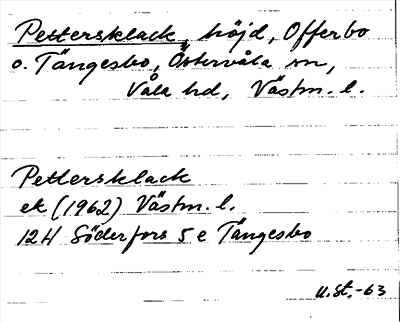 Pettersklack, höjd, Offerbo
o. Tängesbo, Östervåla sn,
Våla hd, Västm. l.
Pettersklack
ek (1962) Västm. l.
12H Söderfors 5 e Tängesbo
U.St.-63